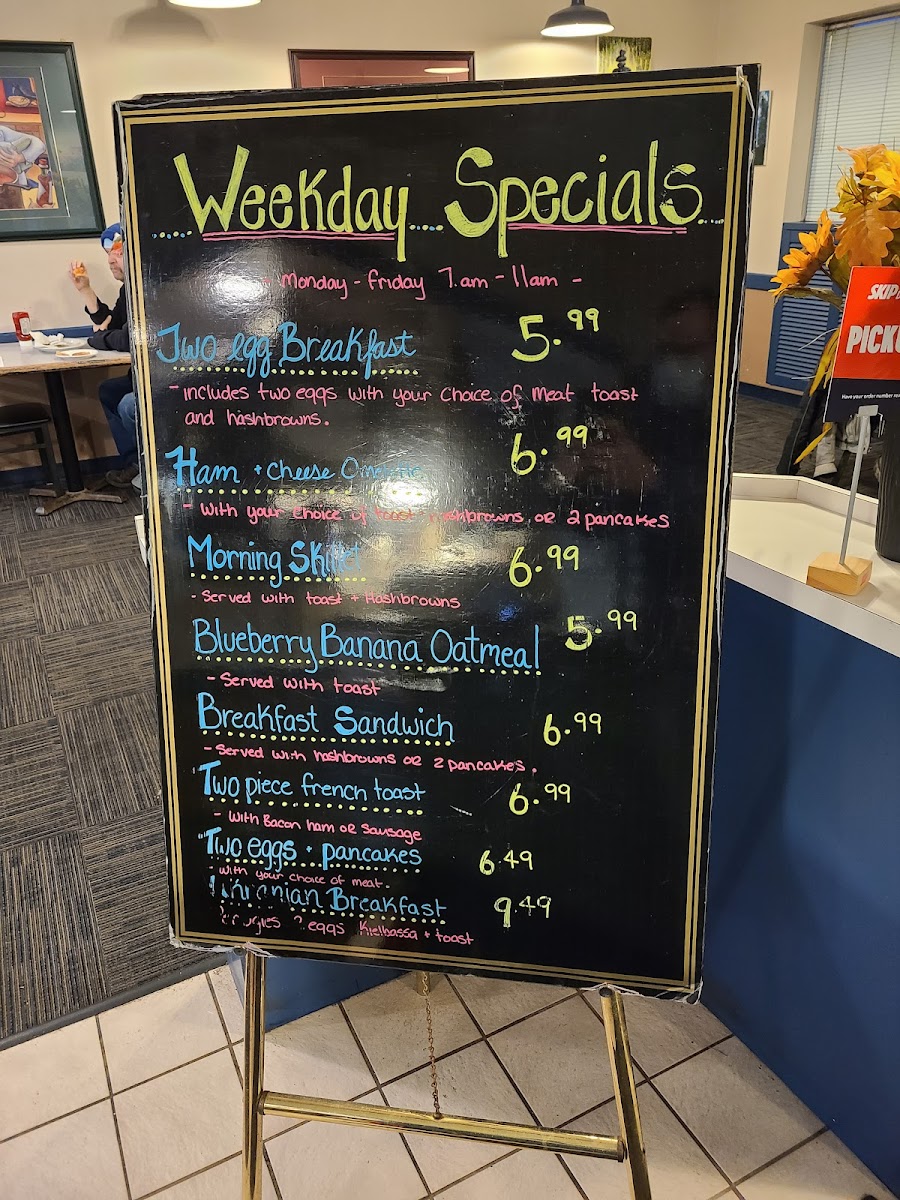 Weekday.... Specials...
- Monday - Friday 7.am - 11am -
Two egg Breakfast 5.99
- includes two eggs with your choice of meat toast
and hashbrowns.
Ham + cheese 6.99
- with your choice of toast, hashbrowns or 2 pancakes
Morning Skillet 6.99
- Served with toast + Hashbrowns
Blueberry Banana Oatmeal 5.99
- Served with toast
Breakfast Sandwich 6.99
- Served with hashbrowns or 2 pancakes.
Two piece french toast 6.99
- With Bacon ham or Sausage
Two eggs + pancakes 6.49
- with your choice of meat.
Ukranian Breakfast 9.49
2 eggs Kielbassa + toast
SKIP
PICKU
Have your order number